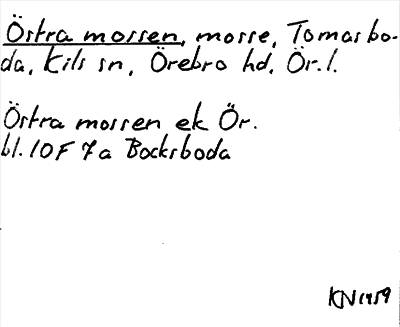 Östra mossen, mosse, Tomasbo-
da, Kils sn, Örebro hd, Ör.l.
Östra mossen ek Ör.
bl. 10F 7a Bocksboda
KN 1959